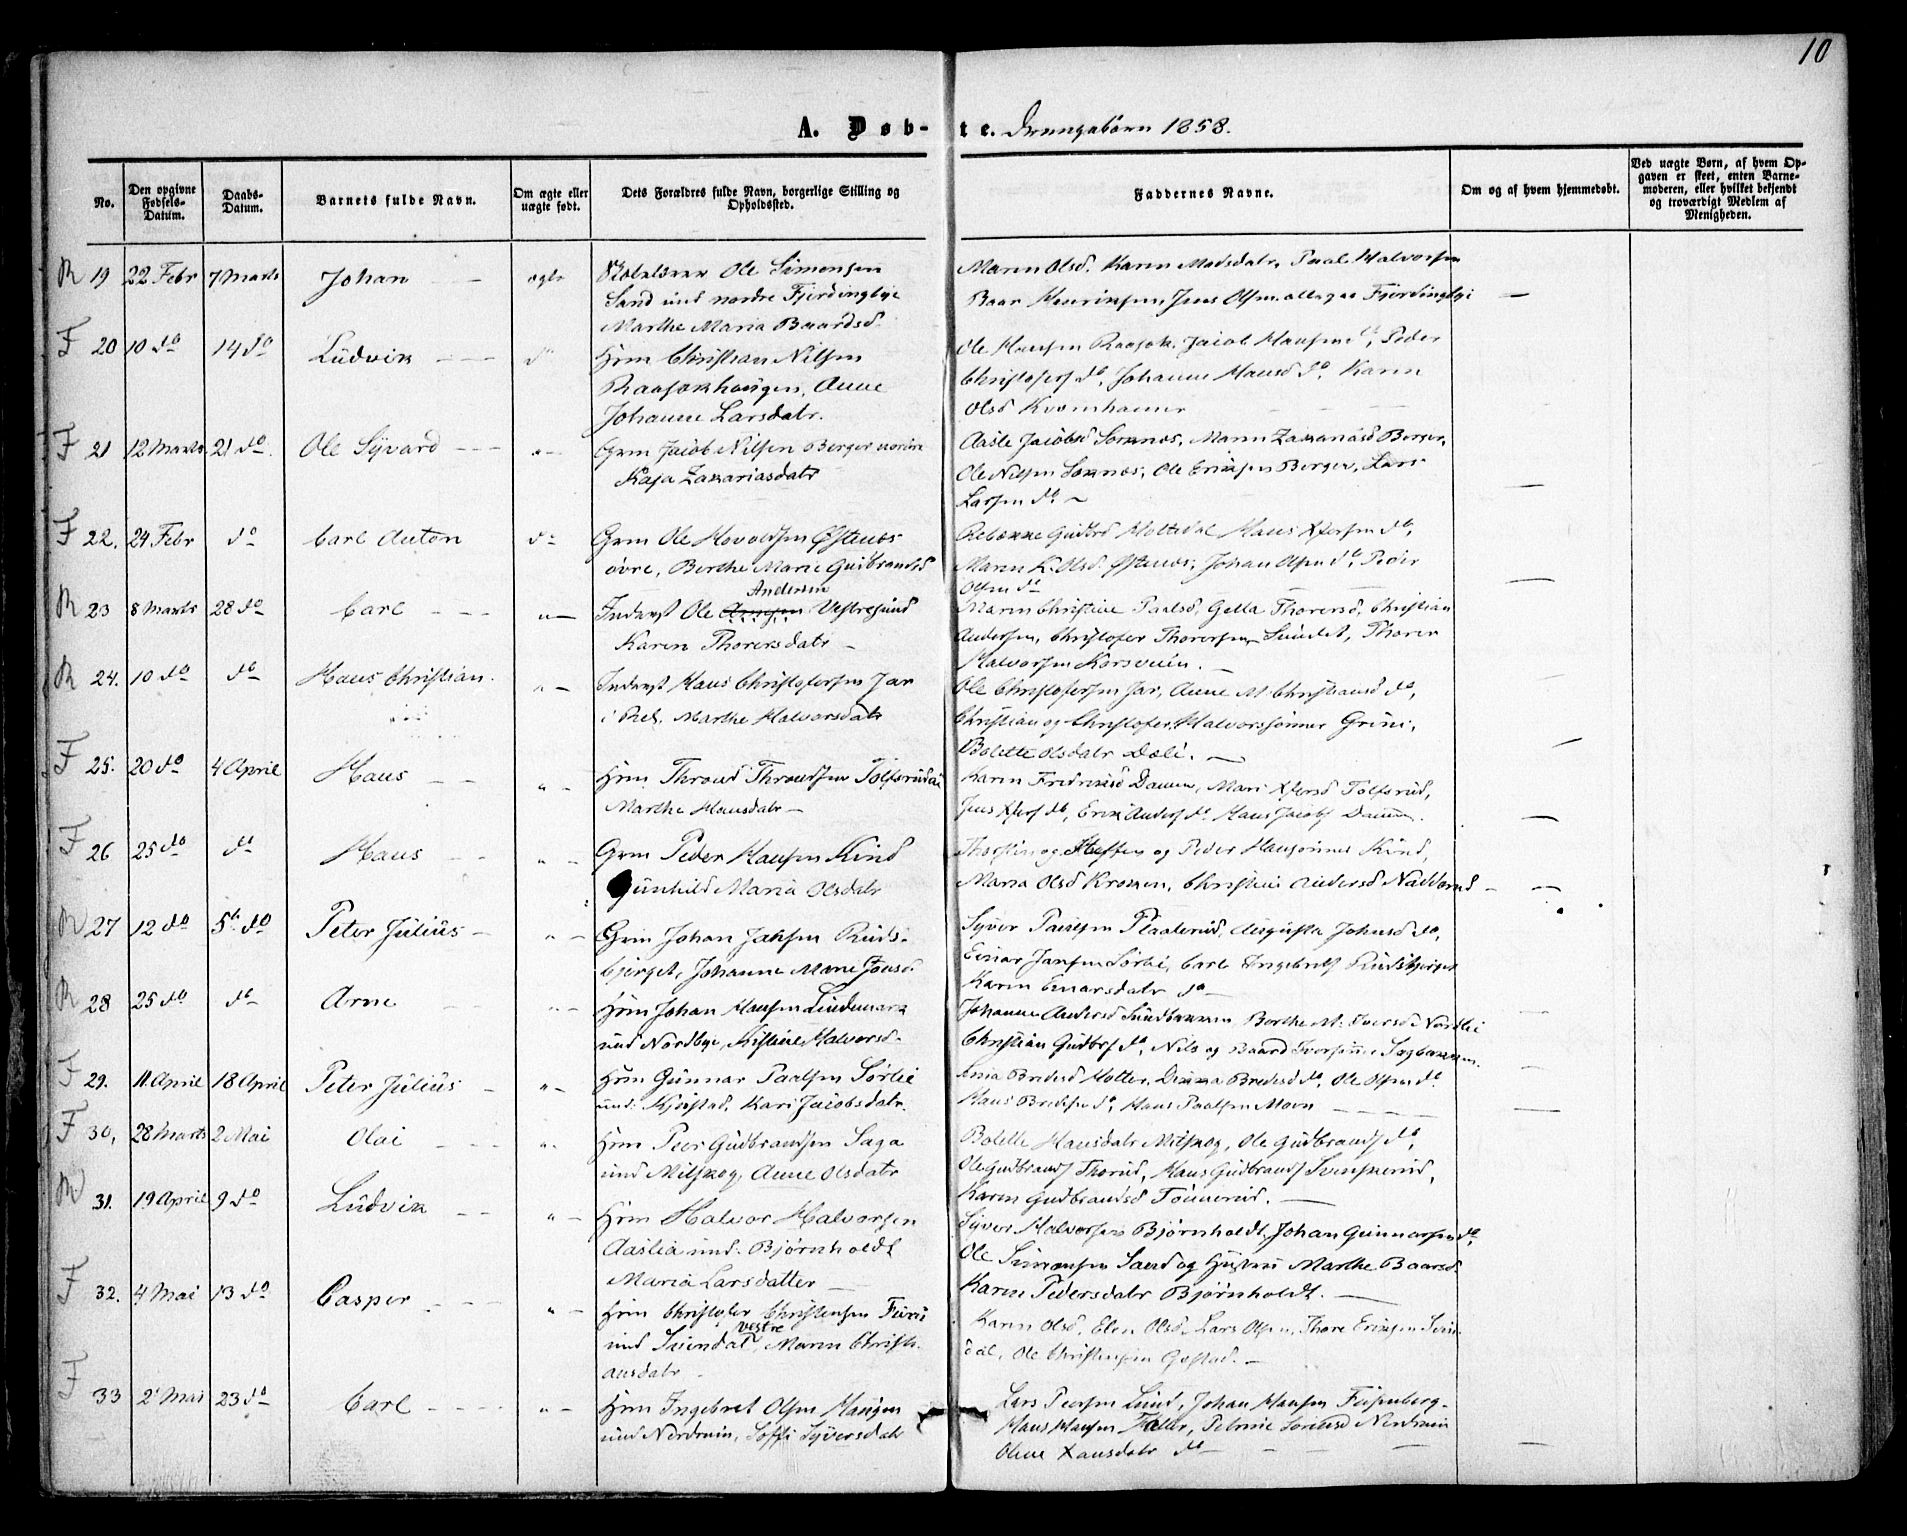 10
A. Døb-te. Drengebørn 1858.
No.
Den opgivne Fødsels-Datum.
Daabs-Datum.
Barnets fulde Navn.
Om ægte eller uægte født.
Dets Forældres fulde Navn, borgerlige Stilling og Opholdssted.
Faddernes Navne.
Om og af hvem hjemmedøbt.
Ved uægte Børn, af hvem Opgaven er skeet, enten Barnemoderen, eller hvilket bekjendt og troværdigt Medlem af Menigheden.
R 19 22 Febr 7 Marts Johan ægte Skolelærer Ole Simensen
Sand und nordre Fjerdingbye
Marthe Maria Baardsd.
Maren Olsd. Karen Madsdatr, Paal Halvorsen
Baar Henriksen, Jens Olsen alle paa Fjerdingbye
F 20 10 do 14 do Ludvik do Hm Christian Nilsen
Raasokhaugen, Anne
Johanne Larsdatr.
Ole Hansen Raasok. Jacob Hansen do, Peder
Christofers do, Johanne Hansd do, Karen
Olsd
F 21 12 Marts 21 do Ole Syvard Grm Jacob Nilsen Berger nordre
Kaja Zakariasdatr
Aasle Jacobsd Soknes, Maren Zakariasd Berger,
Ole Nilsen Soknes, Ole Eriksen Berger, Lars
Larsen do
F 22. 24 Febr do Carl Anton do Grm Ole Hovoldsen Østenes
øvre, Berthe Marie Gulbrandsd
Rebekke Gudbrd Holtedal Hans Xfersen do,
Maren K. Olsd. Østenes, Johan Olsen do, Peder
Olsen do
R 23 8 Marts 28 do Carl Inderst Ole Andersen Vestresund
Karen Thorersdatr
Maren Christine Paalsd, Gella Thorersd, Christian
Andersen, Christofer Thorersen Sundet, Thorer
Halvorsen Korsveien.
R 24. 10 do do Hans Christian. Inderst Hans Christofersen Jar
i Ret, Marthe Halvorsdatr
Ole Christofersen Jar, Anne M. Christiansd do,
Christian og Christofer Halvorssønner Grini,
Bolette Olsdatr Dæli.
F 25. 20 do 4 April Hans Hm Thrond Throndsen Tolfsrudeie
Marthe Hansdatr
Karen Fredriksd Damen, Mari Xfersd Tolfsrud,
Jens Xfers do, Erik Anders do Hans Jacobs Damen.
F 26 25 do do Hans Grm Peder Hansen Kind
Gunhild Maria Olsdatr
Thorstin og Steffen og Peder Hanssønner Kind,
Maria Olsd Kroken, Christine Andersd
R 27 12 do 5te do Peter Julius Grm Johan Jahsen Ruds-
bjerget, Johanne Marie Jonsd.
Syver Paulsen Plaaterud, Augusta Johnsd do,
Einar Jansen Sørlie, Carl Ingebrets Rudsbjerget
Karen Einarsdatr do
R 28 25 do do Arne Hm Johan Hansen Lindemark
und Nordbye, Kistine Halvorsd.
Johanne Andersd Sundbakken, Berthe M. Iversd Nordlie
Christian Gudbrs do, Nils og Baard Iversønner Sagbakken.
F 29. 11 April 18 April Peter Julius Hm Gunnar Paalsen Sørlie
und. Kjelstad, Kari Jacobsdatr.
Bredesd Holter, Dikka Bredesd do, Ole Olsen do
Hans Bredesen do, Hans Paalsen Moen
F 30, 28 Marts 2 Mai Olai Hm Peer Gudbrandsen Saga
und Mitskog, Anne Olsdatr
Bolette Hansdatr Mitskog, Ole Gudbrands do,
Ole Gudbrands Thorud, Hans Gudbrands Svenskerud,
Karen Gudbrandsd Tønnerud.
R 31. 19 April 9 do Ludvik Hm Halvor Halvorsen
Aaslia und. Bjørnholdt
Maria Larsdatter
Syver Halvorsen Bjørnholdt, Johan Gunnarsen do,
Ole Simensen Sand og Hustru Marthe Baarsd
Karen Pedersdatr Bjørnholdt.
F 32. 4 Mai 13 do Casper Hm Christofer Christensen Furu
und Svendal vestre, Maren Christi-
ansdatr
Karen Olsd, Elen Olsd, Lars Olsen, Thore Eriksen Sven-
dal, Ole Christensen Gystad.
F 33 2 Mai 23 do Carl Hm Ingebret Olsen Haugen
und Nordrum, Soffi Syversdatr
Lars Peersen Lund, Johan Hansen
Hans Hansen Fæller, Petrine Nordrum
Oline Hansdatr do